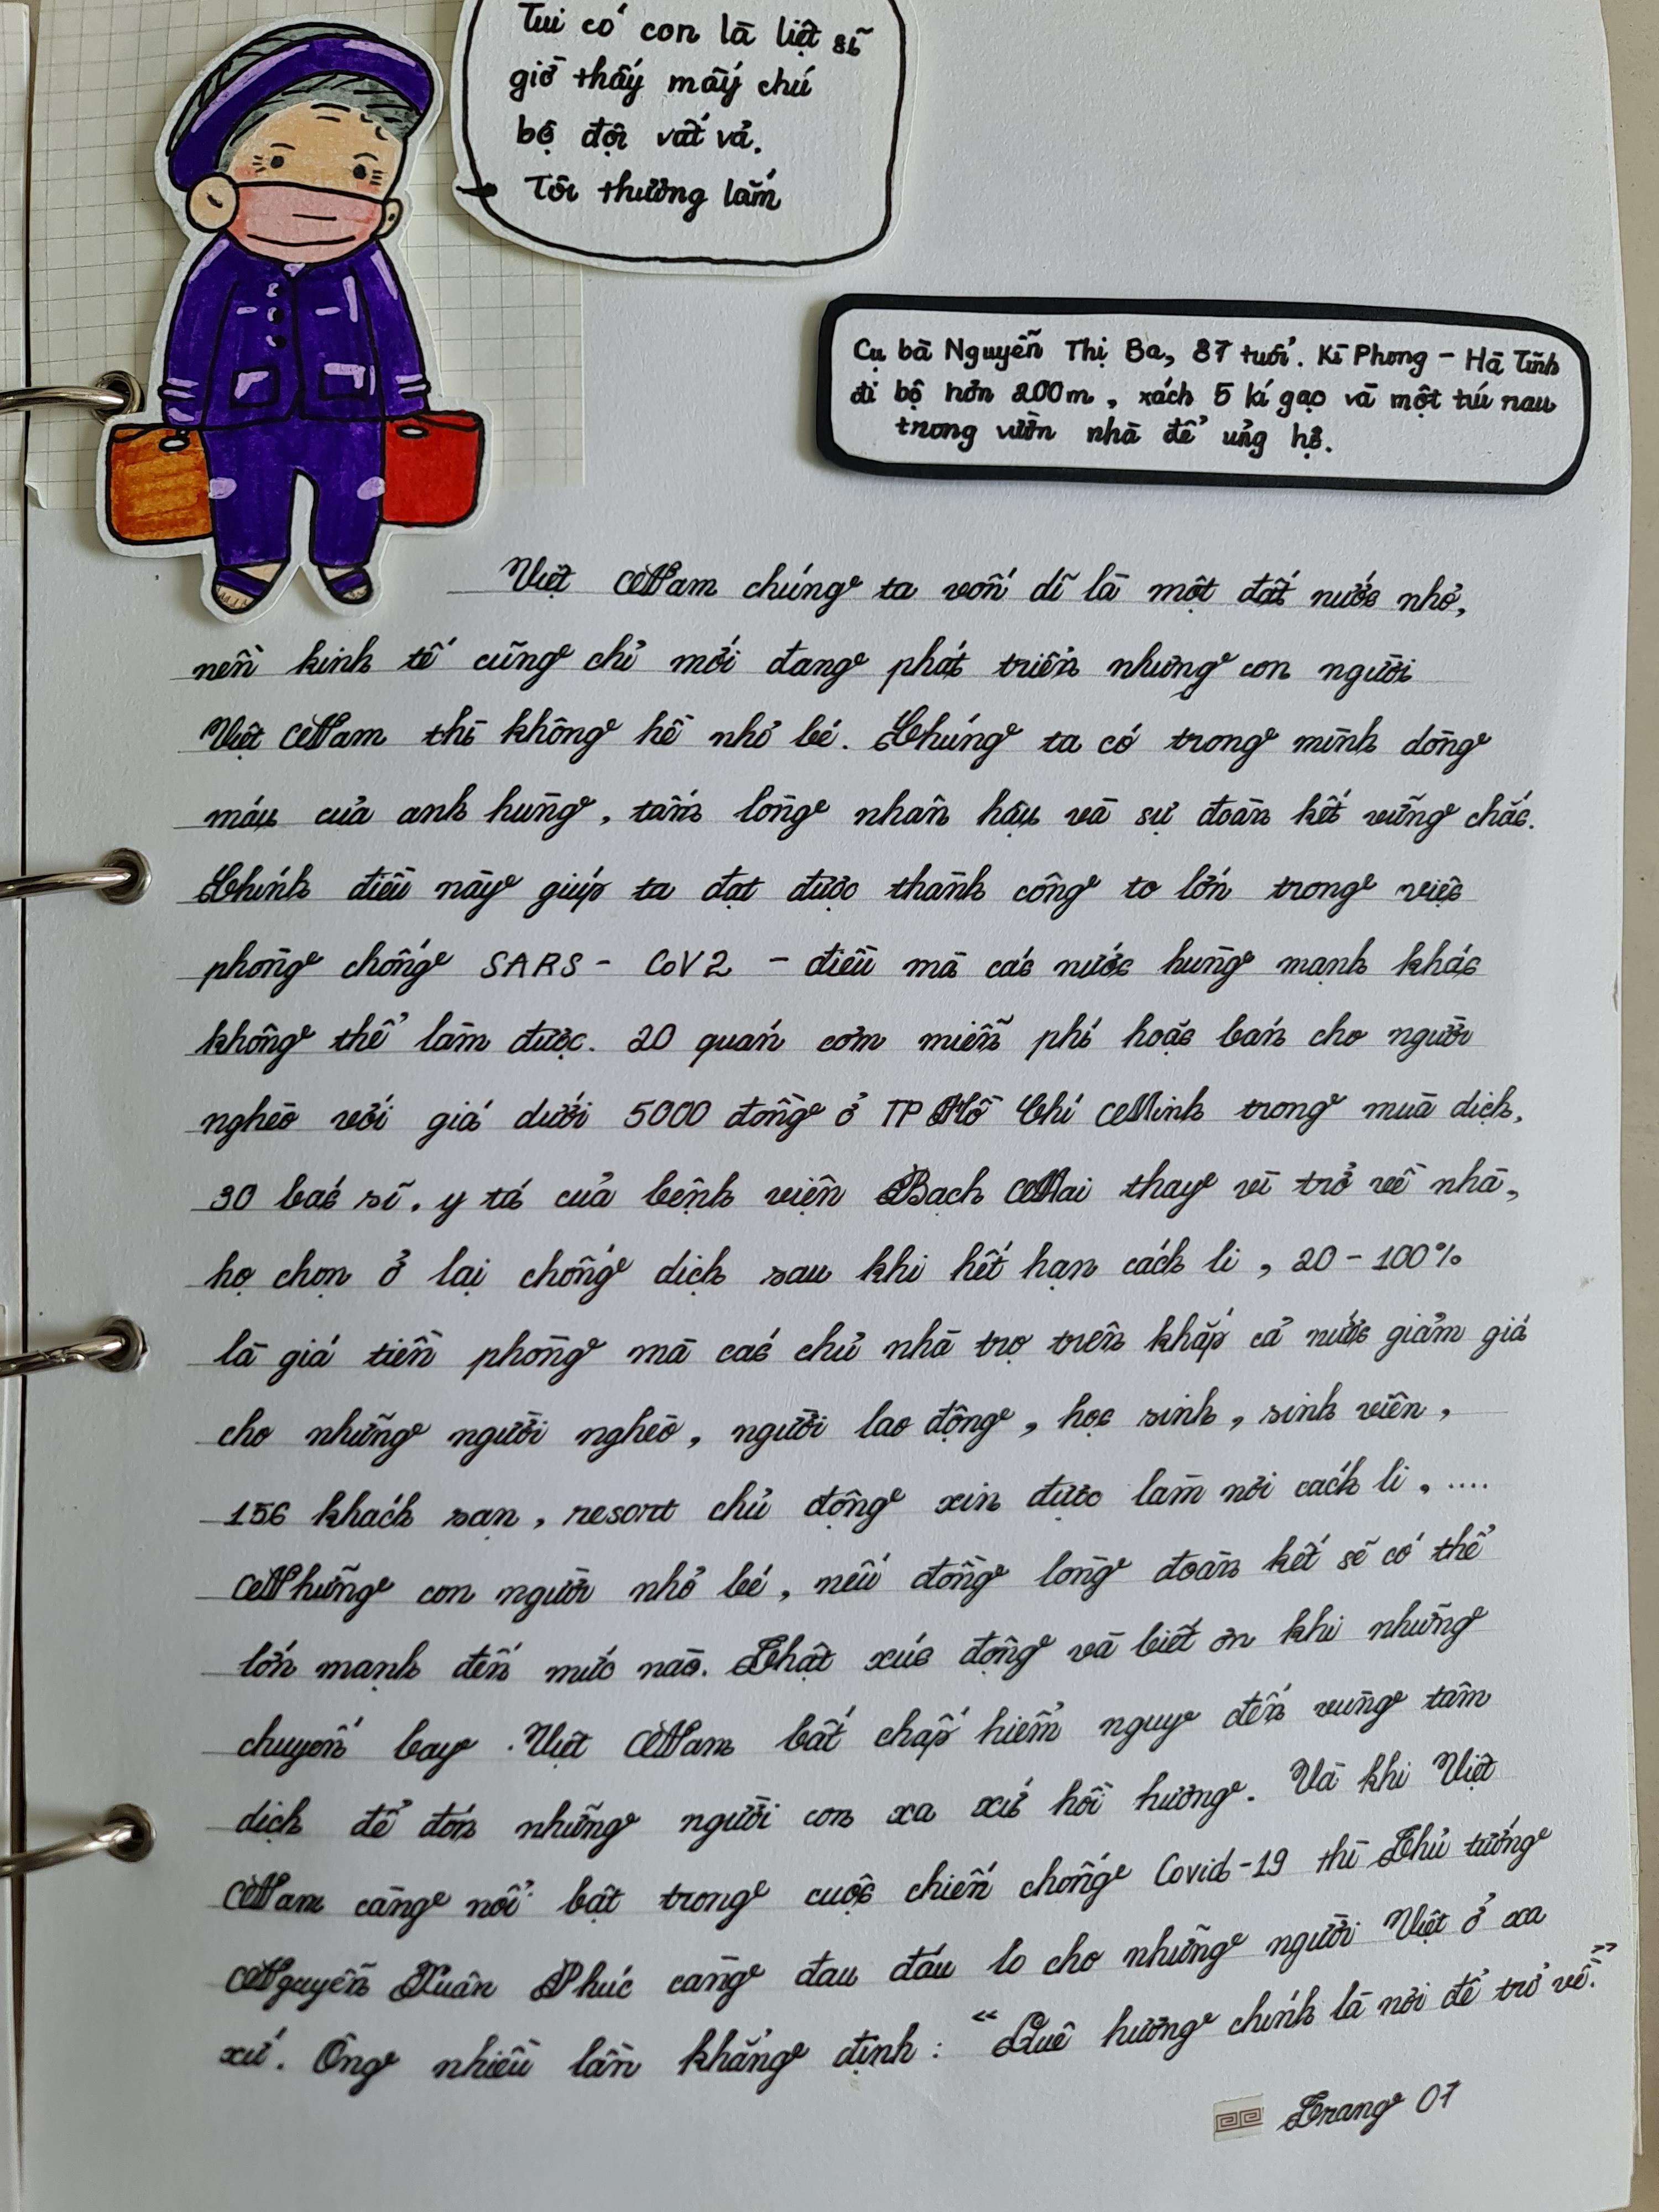 Tui có con là liệt sĩ
giờ thấy mấy chú
bộ đội vất vả.
Tôi thương lắm
Cụ bà Nguyễn Thị Ba, 87 tuổi. Kì Phong - Hà Tĩnh
đi bộ hơn 200m, xách 5 kí gạo và một túi rau
trong vườn nhà để ủng hộ.
Việt Nam chúng ta vốn dĩ là một đất nước nhỏ,
nền kinh tế cũng chỉ mới đang phát triển nhưng con người
Việt Nam thì không hề nhỏ bé. Chúng ta có trong mình dòng
máu của anh hùng, tấm lòng nhân hậu và sự đoàn kết vững chắc.
Chính điều này giúp ta đạt được thành công to lớn trong việc
phòng chống SARS - CoV2 - điều mà các nước hùng mạnh khác
không thể làm được. 20 quán cơm miễn phí hoặc bán cho người
nghèo với giá dưới 5000 đồng ở TP Hồ Chí Minh trong mùa dịch,
30 bác sĩ, y tá của bệnh viện Bạch Mai thay vì trở về nhà,
họ chọn ở lại chống dịch sau khi hết hạn cách li, 20 - 100%
là giá tiền phòng mà các chủ nhà trọ trên khắp cả nước giảm giá
cho những người nghèo, người lao động, học sinh, sinh viên,
156 khách sạn, resort chủ động xin được làm nơi cách li, ....
Những con người nhỏ bé, nếu đồng lòng đoàn kết sẽ có thể
lớn mạnh đến mức nào. Thật xúc động và biết ơn khi những
chuyến bay Việt Nam bất chấp hiểm nguy đến vùng tâm
dịch để đón những người con xa xứ hồi hương. Và khi Việt
Nam càng nổi bật trong cuộc chiến chống Covid-19 thì Thủ tướng
Nguyễn Xuân Phúc càng đau đáu lo cho những người Việt ở xa
xứ. Ông nhiều lần khẳng định: "Quê hương chính là nơi để trở về."
Trang 07